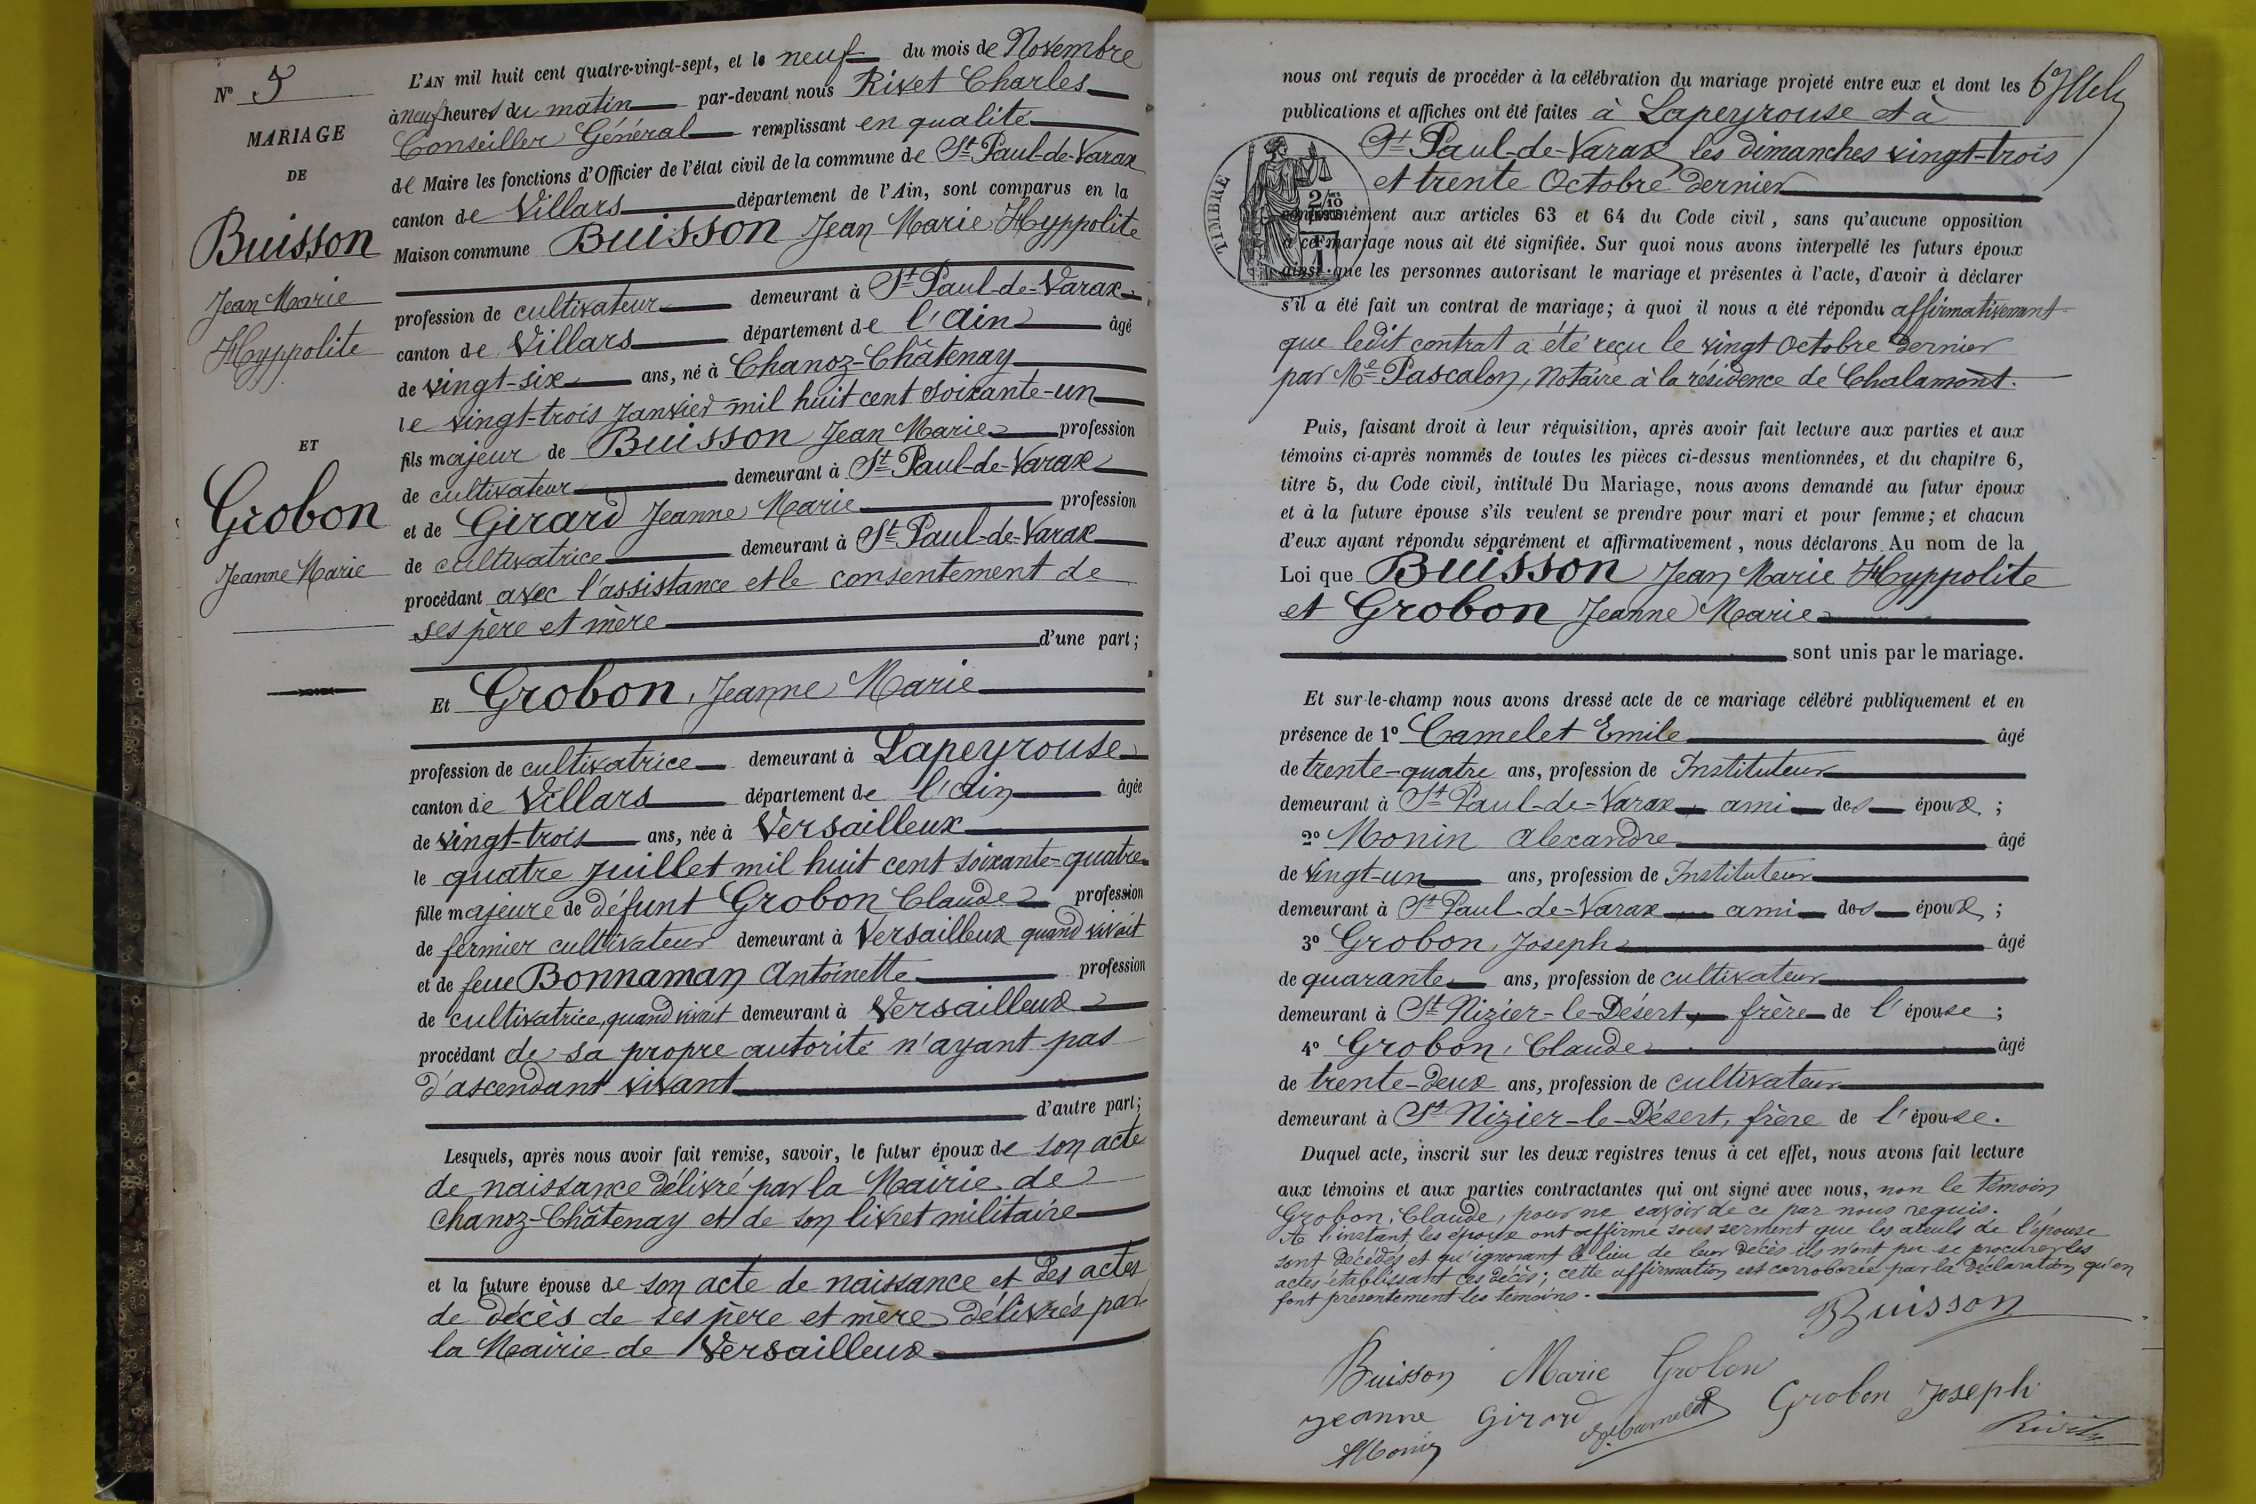 N° 5
MARIAGE
DE
Buisson
Jean Marie
Hyppolite
ET
Grobon
Jeanne Marie
L'AN mil huit cent quatre-vingt-sept, et le neuf du mois de Novembre
à neuf heures du matin par-devant nous Rivet Charles
Conseiller Général remplissant en qualité
de Maire les fonctions d'Officier de l'état civil de la commune de St Paul-de-Varax
canton de Villars département de l'Ain, sont comparus en la
Maison commune Buisson Jean Marie Hyppolite
profession de cultivateur demeurant à St Paul-de-Varax
canton de Villars département de l'Ain âgé
de vingt-six ans, né à Chanoz-Châtenay
le vingt-trois Janvier mil huit cent soixante-un
fils majeur de Buisson Jean Marie profession
de cultivateur demeurant à St Paul-de-Varax
et de Girard Jeanne Marie profession
de cultivatrice demeurant à St Paul-de-Varax
procédant avec l'assistance et le consentement de
ses père et mère
d'une part;
Et Grobon, Jeanne Marie
profession de cultivatrice demeurant à Lapeyrouse
canton de Villars département de l'Ain âgée
de vingt-trois ans, née à Versailleux
le quatre Juillet mil huit cent soixante-quatre
fille majeure de défunt Grobon Claude profession
de fermier cultivateur demeurant à Versailleux quand vivait
et de feue Bonnaman Antoinette profession
de cultivatrice, quand vivait demeurant à Versailleux
procédant de sa propre autorité n'ayant pas
d'ascendant vivant
d'autre part;
Lesquels, après nous avoir fait remise, savoir, le futur époux de son acte
de naissance délivré par la Mairie de
Chanoz-Châtenay et de son livret militaire
et la future épouse de son acte de naissance et des actes
de décès de ses père et mère délivrés par
la Mairie de Versailleux
nous ont requis de procéder à la célébration du mariage projeté entre eux et dont les
publications et affiches ont été faites à Lapeyrouse et à
St Paul-de-Varax les dimanches vingt-trois
et trente Octobre dernier
TIMBRE
2/10
conformément aux articles 63 et 64 du Code civil, sans qu'aucune opposition
à ce mariage nous ait été signifiée. Sur quoi nous avons interpellé les futurs époux
ainsi que les personnes autorisant le mariage et présentes à l'acte, d'avoir à déclarer
s'il a été fait un contrat de mariage; à quoi il nous a été répondu affirmativement
que ledit contrat a été reçu le vingt Octobre dernier
par Me Pascalon, Notaire à la résidence de Chalamont.
Puis, faisant droit à leur réquisition, après avoir fait lecture aux parties et aux
témoins ci-après nommés de toutes les pièces ci-dessus mentionnées, et du chapitre 6,
titre 5, du Code civil, intitulé Du Mariage, nous avons demandé au futur époux
et à la future épouse s'ils veulent se prendre pour mari et pour femme; et chacun
d'eux ayant répondu séparément et affirmativement, nous déclarons Au nom de la
Loi que Buisson Jean Marie Hyppolite
et Grobon Jeanne Marie
sont unis par le mariage.
Et sur-le-champ nous avons dressé acte de ce mariage célébré publiquement et en
présence de 1° Camelet Emile âgé
de trente-quatre ans, profession de Instituteur
demeurant à St Paul-de-Varax, ami des époux;
2° Monin Alexandre âgé
de vingt-un ans, profession de Instituteur
demeurant à St Paul-de-Varax ami des époux;
3° Grobon, Joseph âgé
de quarante ans, profession de cultivateur
demeurant à St Nizier-le-Désert, frère de l'épouse;
4° Grobon, Claude âgé
de trente-deux ans, profession de cultivateur
demeurant à St Nizier-le-Désert, frère de l'épouse.
Duquel acte, inscrit sur les deux registres tenus à cet effet, nous avons fait lecture
aux témoins et aux parties contractantes qui ont signé avec nous, non le témoin
Grobon, Claude, pour ne savoir de ce par nous requis.
A l'instant, les époux ont affirmé sous serment que les aïeuls de l'épouse
sont décédés et qu'ignorant le lieu de leur décès ils n'ont pu se procurer les
actes établissant ces décès; cette affirmation est corroborée par la déclaration qu'en
font présentement les témoins.
Buisson
Buisson Marie Grobon
Jeanne Girard Camelet Grobon Joseph
AMonin Rivet